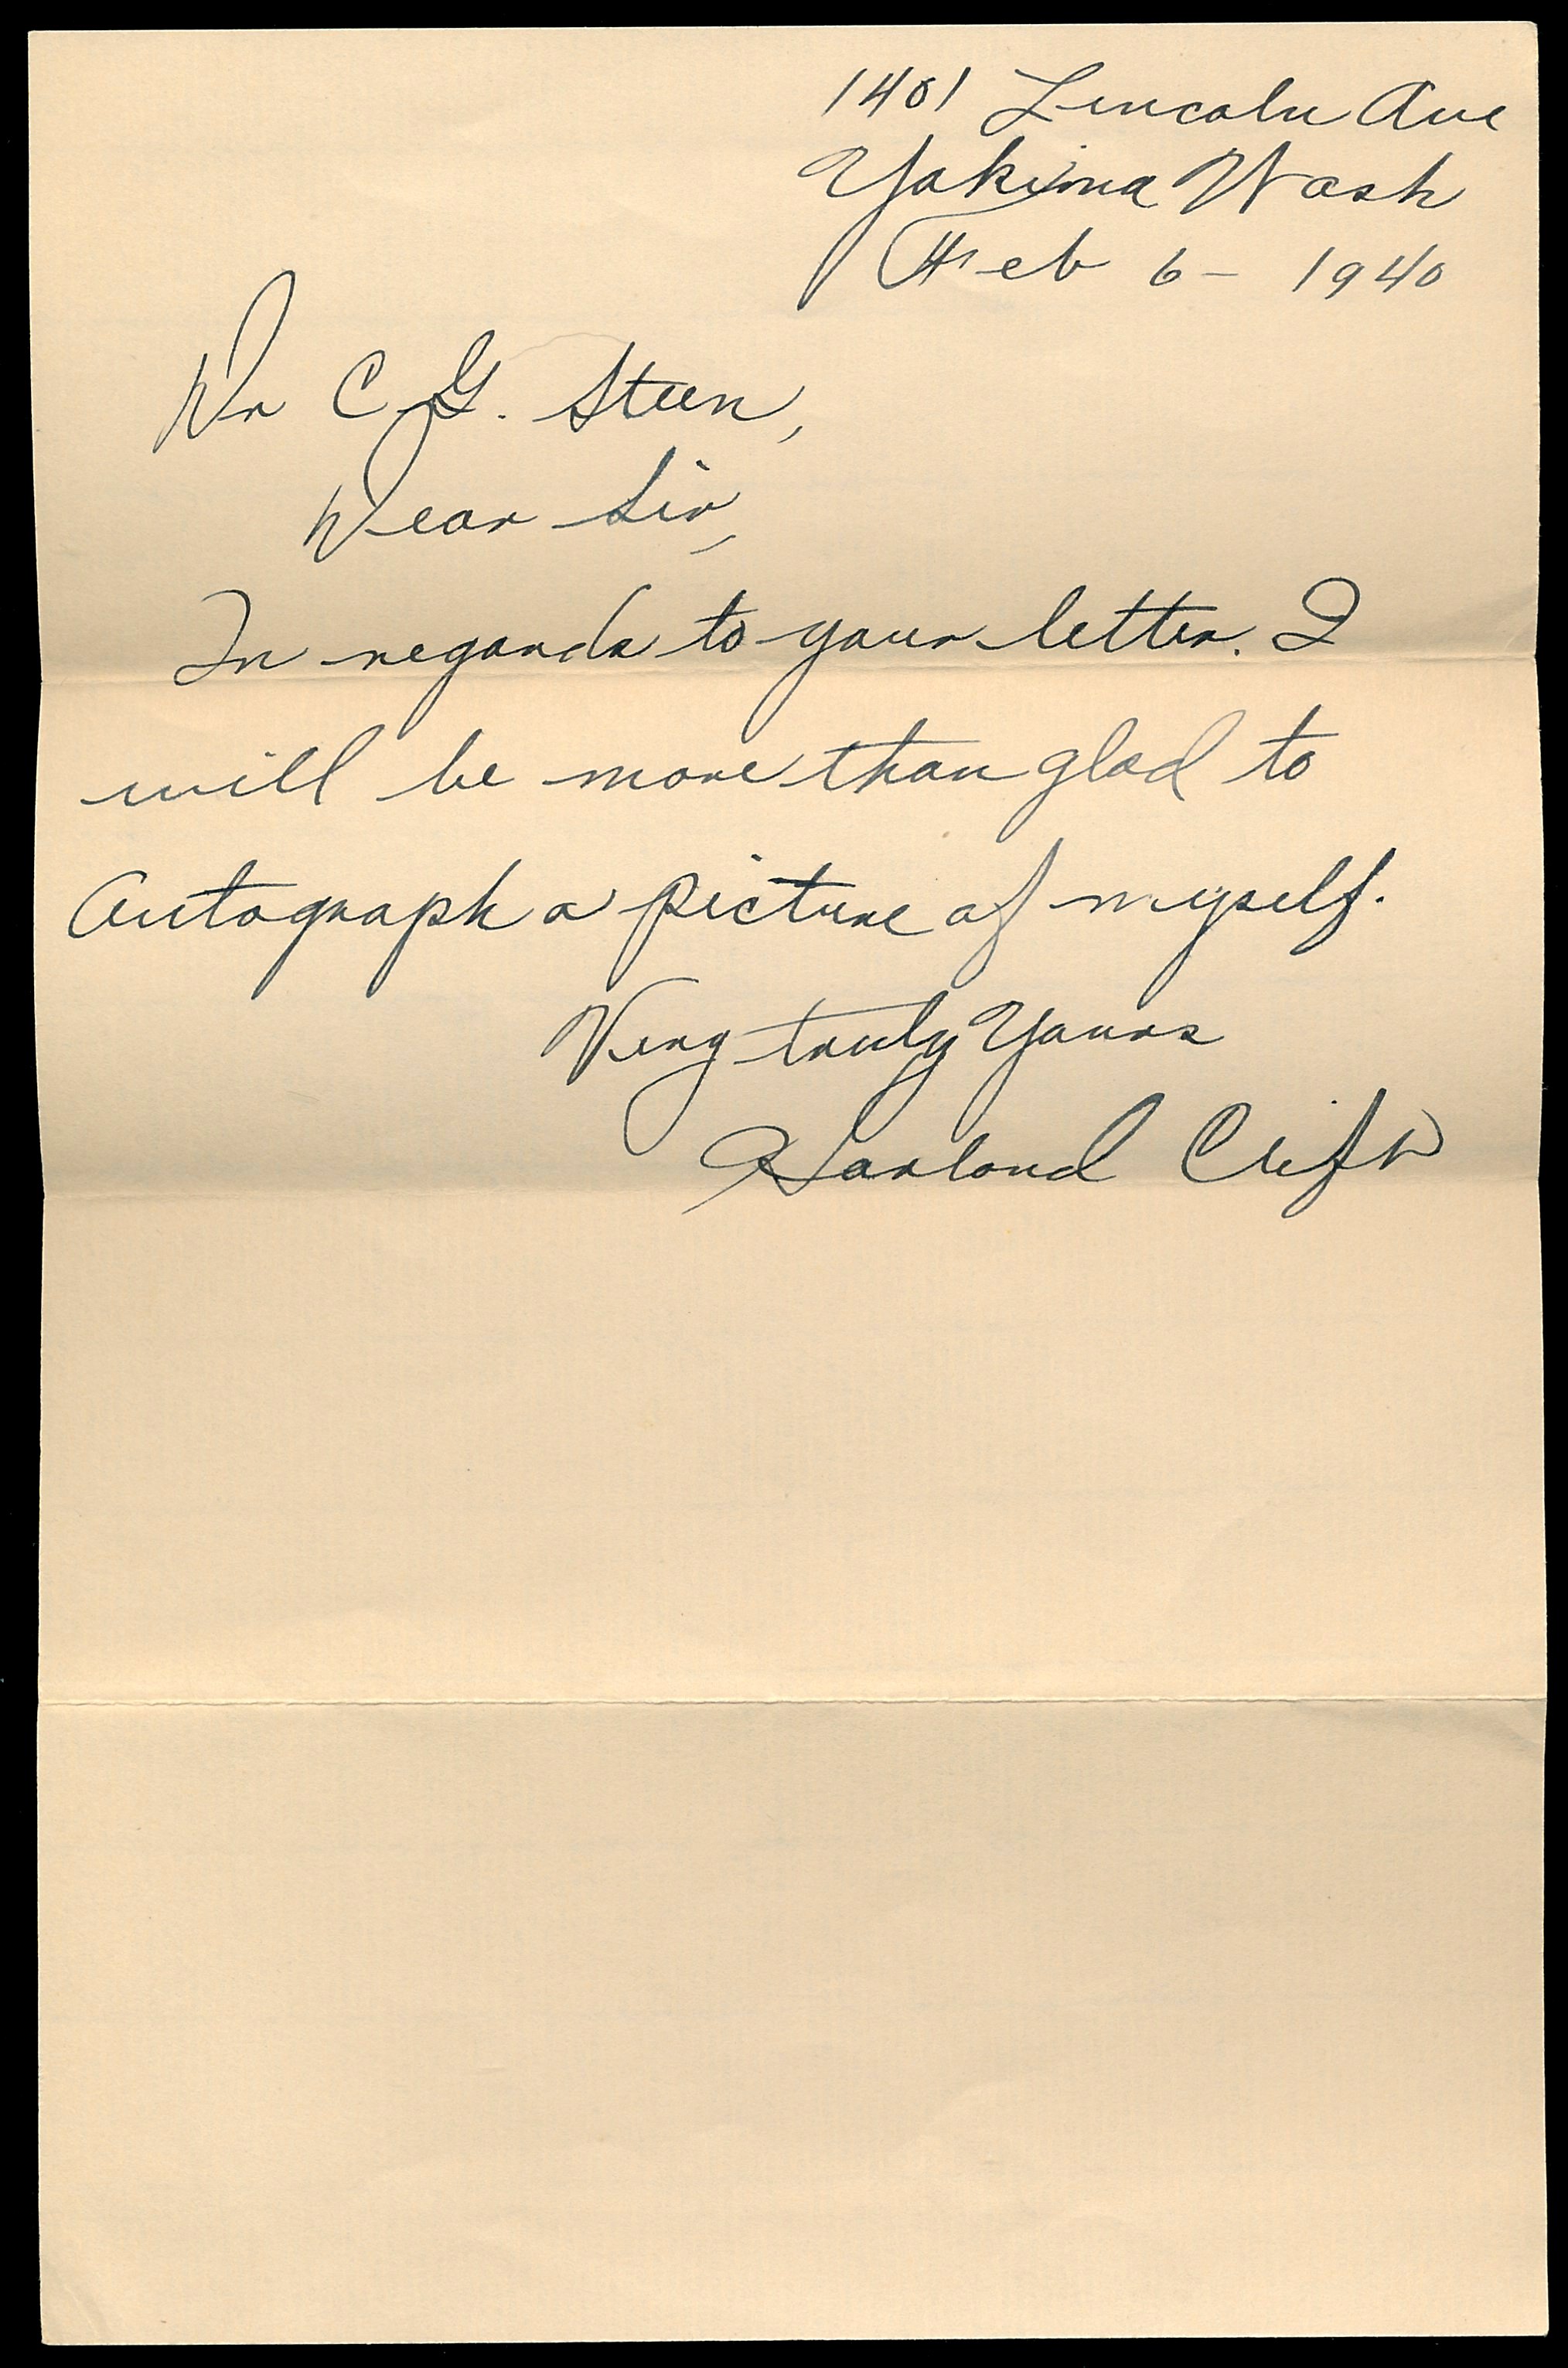 1401 Lincoln Ave
Yakima Wash
Feb 6 - 1940
Dr C. G. Steen,
Dear Sir,
In regards to your letter. I
will be more than glad to
Autograph a picture of myself.
Very truly Yours
Garland Clift